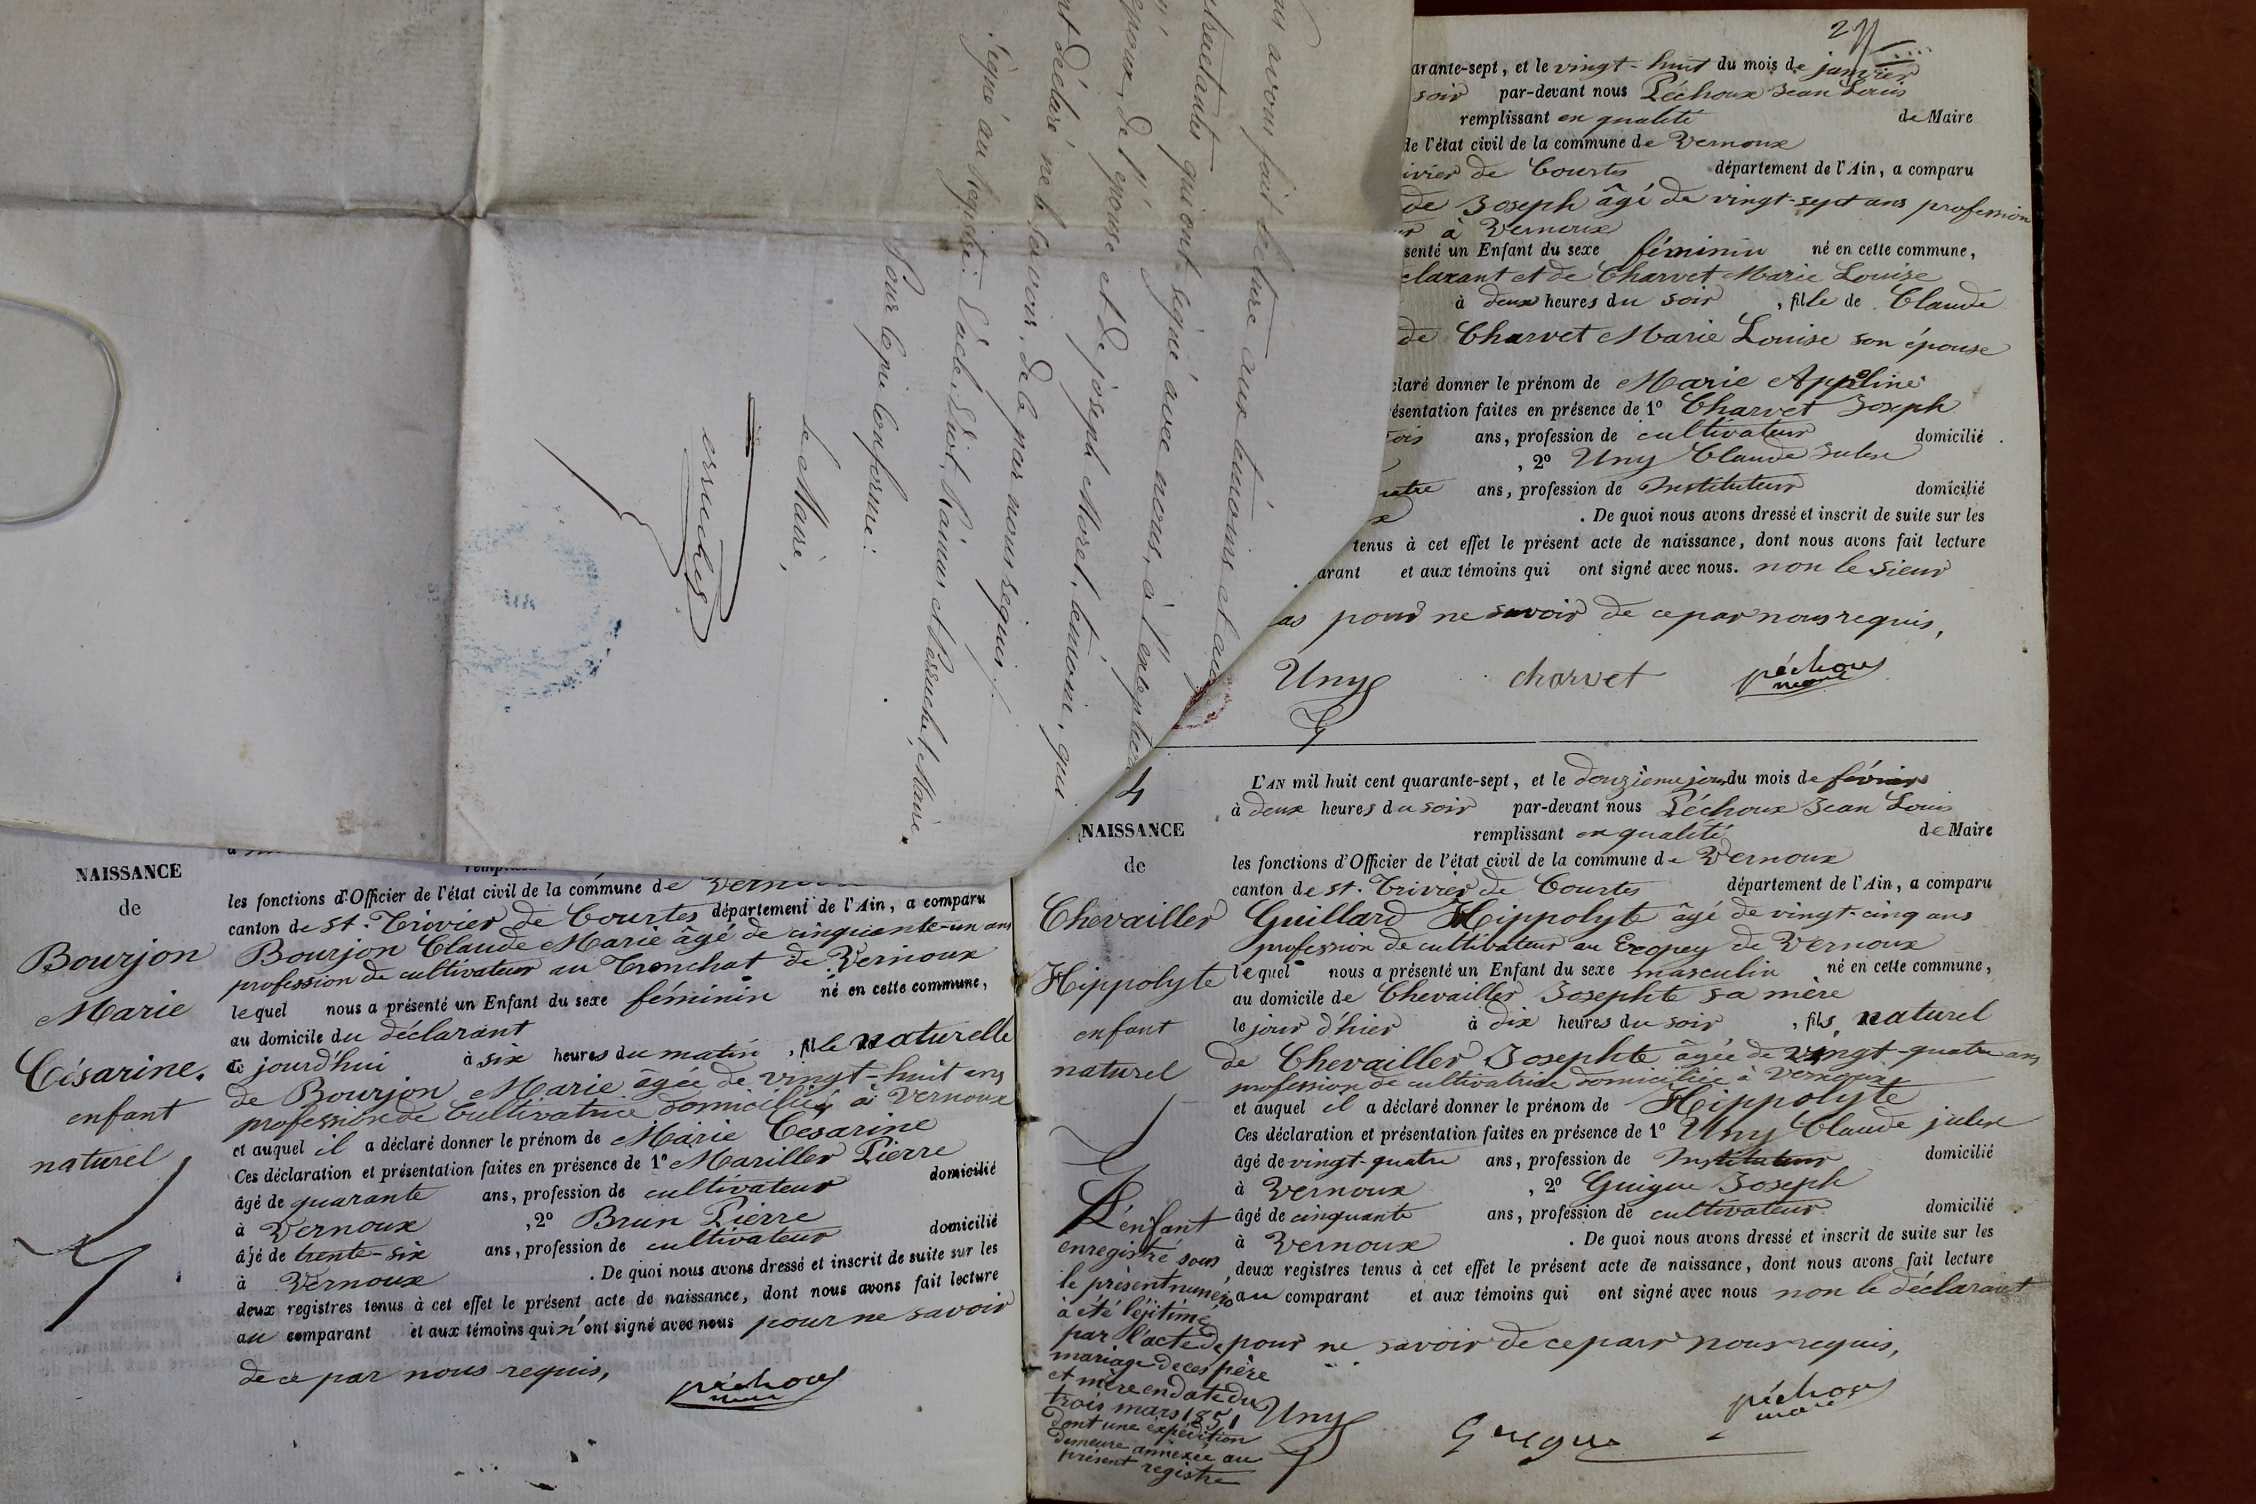 avons fait lecture aux témoins et aux
contractantes qui ont signé avec nous, à l'exception
époux, de l'épouse et de joseph Morel, témoins, qui
ont déclaré ne le savoir, de la par nous requis.
signé au Registre: Pesruche, Maire.
Pour Copie Conforme:
le Maire,
NAISSANCE
de
Bourjon
Marie
Césarine.
enfant
naturel
les fonctions d'Officier de l'état civil de la commune de Vernoux
canton de St. Trivier de Courtes département de l'Ain, a comparu
Bourjon Claude Marie âgé de cinquante-un ans
profession de cultivateur au Tronchat de Vernoux
lequel nous a présenté un Enfant du sexe féminin né en cette commune,
au domicile du déclarant
ce jourd'hui à six heures du matin, fille naturelle
de Bourjon Marie âgée de vingt-huit ans
profession de Cultivatrice domiciliée à Vernoux
et auquel il a déclaré donner le prénom de Marie Césarine
Ces déclaration et présentation faites en présence de 1º Mariller Pierre
âgé de quarante ans, profession de cultivateur domicilié
à Vernoux, 2º Brun Pierre
âgé de trente-six ans, profession de cultivateur domicilié
à Vernoux. De quoi nous avons dressé et inscrit de suite sur les
deux registres tenus à cet effet le présent acte de naissance, dont nous avons fait lecture
au comparant et aux témoins qui n'ont signé avec nous pour ne savoir
de ce par nous requis,
péchoux
maire
arante-sept, et le vingt-huit du mois de janvier
soir par-devant nous Péchoux Jean Louis
remplissant en qualité de Maire
de l'état civil de la commune de Vernoux
ivier de Courtes département de l'Ain, a comparu
de Joseph âgé de vingt-sept ans profession
à Vernoux
senté un Enfant du sexe féminin né en cette commune,
clarant et de Charvet Marie Louise
à deux heures du soir, fille de Claude
de Charvet Marie Louise son épouse
claré donner le prénom de Marie Appoline
ésentation faites en présence de 1º Charvet Joseph
ois ans, profession de cultivateur domicilié
, 2º Uny Claude Julese
uatre ans, profession de Instituteur domicilié
. De quoi nous avons dressé et inscrit de suite sur les
tenus à cet effet le présent acte de naissance, dont nous avons fait lecture
arant et aux témoins qui ont signé avec nous. non le sieur
as pour ne savoir de ce par nous requis,
Uny charvet péchoux
maire
4
NAISSANCE
de
Chevailler
Hippolyte
enfant
naturel
L'AN mil huit cent quarante-sept, et le douzieme jour du mois de février
à deux heures du soir par-devant nous Péchoux Jean Louis
remplissant en qualité de Maire
les fonctions d'Officier de l'état civil de la commune de Vernoux
canton de St. Trivier de Courtes département de l'Ain, a comparu
Guillard Hippolyte âgé de vingt-cinq ans
profession de cultivateur au de Vernoux
lequel nous a présenté un Enfant du sexe masculin né en cette commune,
au domicile de Chevailler Josephte sa mère
le jour d'hier à dix heures du soir, fils naturel
de Chevailler Josephte âgée de vingt-quatre ans
profession de cultivatrice domiciliée à Vernoux
et auquel il a déclaré donner le prénom de Hippolyte
Ces déclaration et présentation faites en présence de 1º Uny Claude julese
âgé de vingt-quatre ans, profession de Instituteur domicilié
à Vernoux, 2º Guigue Joseph
âgé de cinquante ans, profession de cultivateur domicilié
à Vernoux. De quoi nous avons dressé et inscrit de suite sur les
deux registres tenus à cet effet le présent acte de naissance, dont nous avons fait lecture
au comparant et aux témoins qui ont signé avec nous non le déclarant
pour ne savoir de ce par nous requis,
Uny Guigue péchoux
maire
L'enfant
enregistré sous
le présent numéro
à été légitimé
par l'acte de
mariage de ces père
et mère en date du
trois mars 1851
dont une expédition
demeure annexée au
présent registre